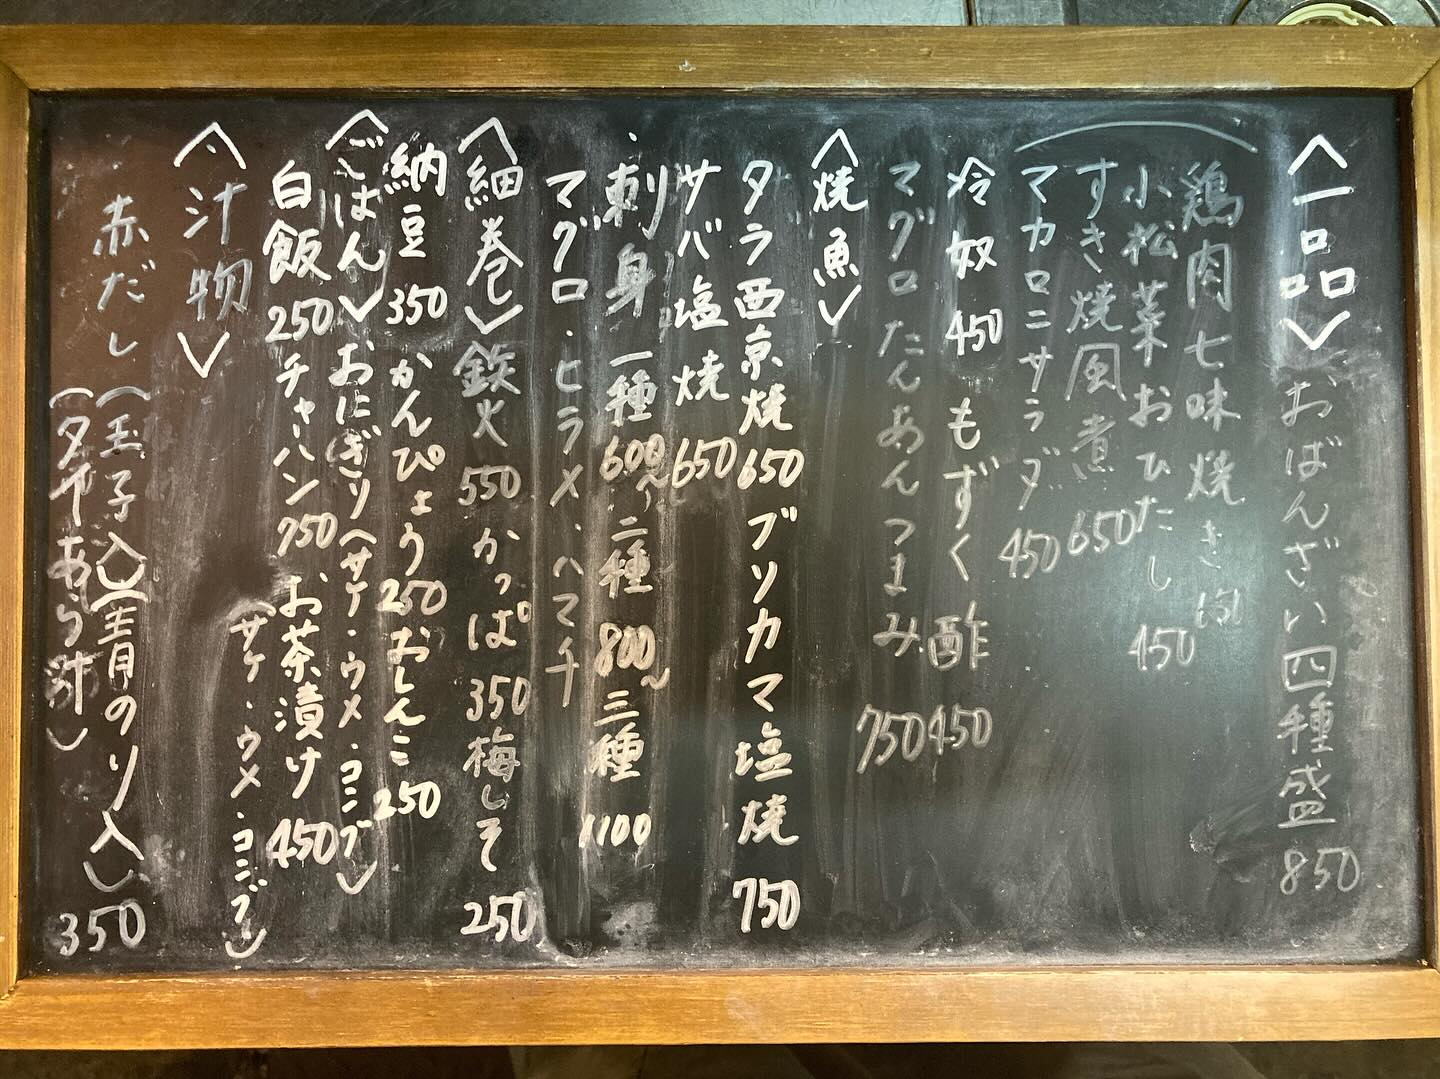 〈一品〉おばんざい四種盛 850
鶏肉七味焼き
小松菜おひたし 450
すき焼風煮 650
マカロニサラダ 450
冷奴 450 もずく酢 450
マグロたんあんつまみ 750
〈焼魚〉
タラ西京焼 650 ブリカマ塩焼 750
サバ塩焼 650
刺身 一種 600〜 二種 800〜 三種 1100
マグロ・ヒラメ・ハマチ
〈細巻〉鉄火 550 かっぱ 350 梅しそ 250
納豆 350 かんぴょう 250 おしんこ 250
〈ごはん〉おにぎり〈サケ・ウメ・コンブ〉
白飯 250 チャーハン 750 お茶漬け 450
(サケ・ウメ・コンブ)
〈汁物〉
赤だし(玉子入)(青のり入) 350
(タイあら汁)